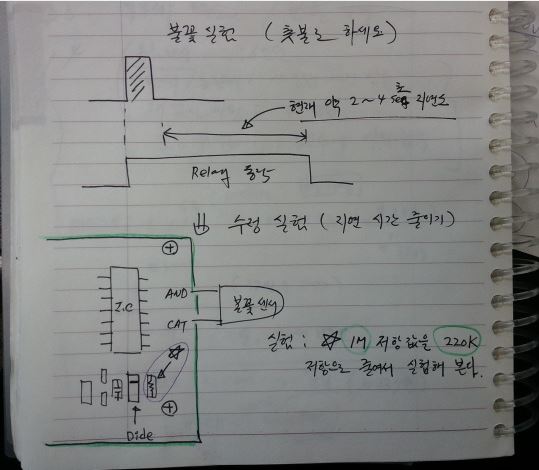 불꽃 실험 (촛불로 하세요)
현재 약 2~4초 지연도
Relay 동작
수정 실험 (지연 시간 줄이기)
I.C
AND
CAT
불꽃센서
실험: ☆ 1M 저항값을 220K
저항으로 줄여서 실험해 본다.
Dide